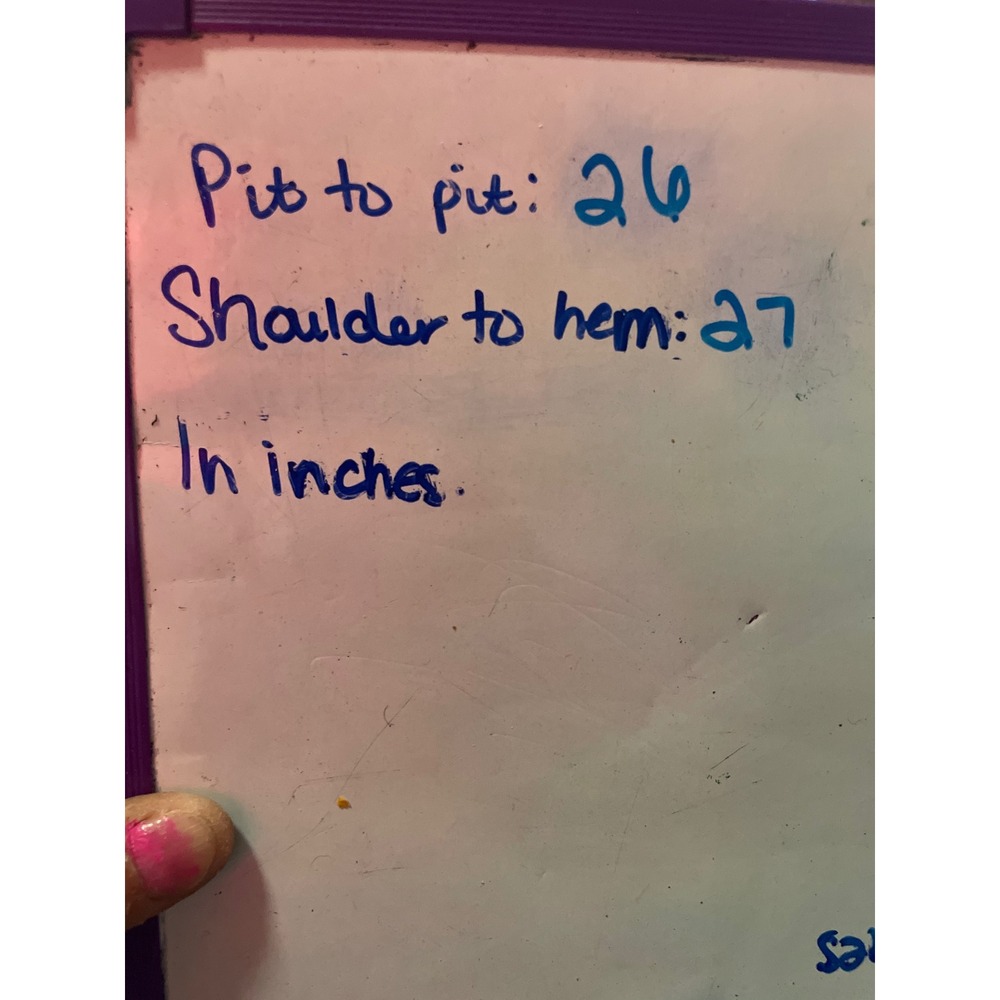 Pit to pit: 26
Shoulder to hem: 27
In inches.